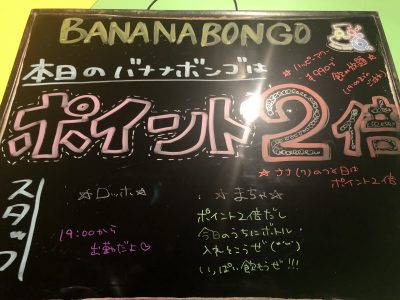 BANANABONGO
本日のバナナボンゴは
ポイント2倍
☆ハッピーアワー
¥990で
飲み放題
☆ナナ(7)のつく日は
ポイント2倍
スタッフ
☆ロッホ☆
19:00から
出勤だよ♡
☆まちゃ☆
ポイント2倍だし
今日のうちにボトル
入れとこうぜ(*'ω')
いっぱい飲もうぜ!!!